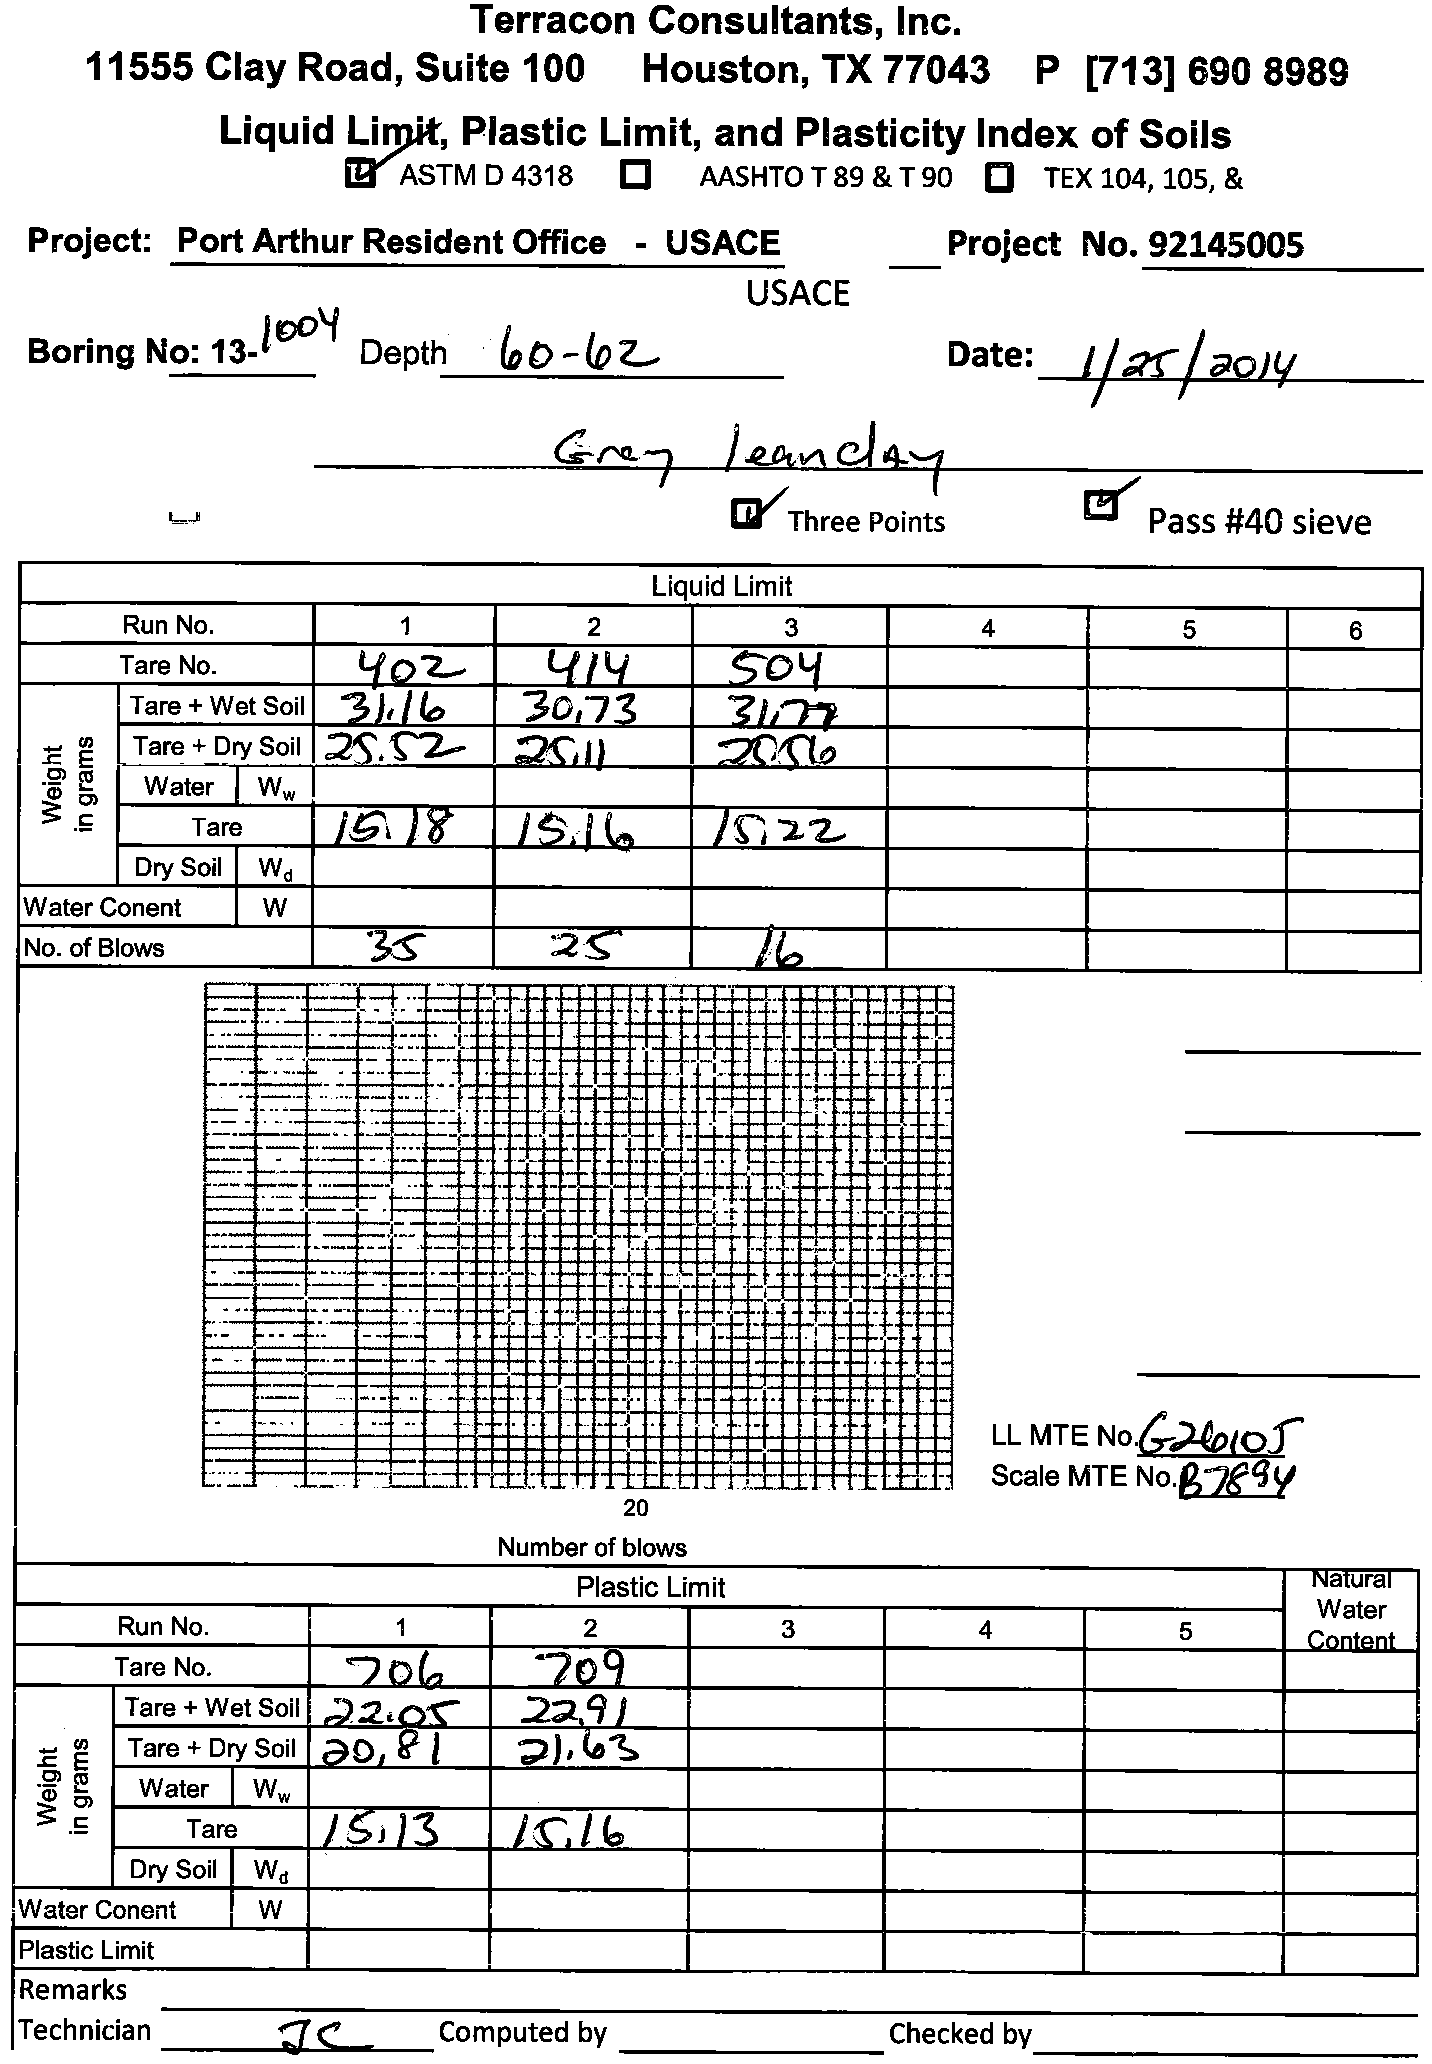 Terracon Consultants, Inc.
11555 Clay Road, Suite 100 Houston, TX 77043 P [713] 690 8989
Liquid Limit, Plastic Limit, and Plasticity Index of Soils
ASTM D 4318 AASHTO T 89 & T 90 TEX 104, 105, &
Project: Port Arthur Resident Office - USACE Project No. 92145005
USACE
Boring No: 13-1004 Depth 60-62 Date: 1/25/2014
Grey lean clay
Three Points Pass #40 sieve
Liquid Limit
Run No. 1 2 3 4 5 6
Tare No. 402 414 504
Weight in grams
Tare + Wet Soil 31.16 30.73 31.77
Tare + Dry Soil 25.52 25.11 25.56
Water Ww
Tare 15.18 15.16 15.22
Dry Soil Wd
Water Conent W
No. of Blows 35 25 16
LL MTE No. G26105
Scale MTE No. B7894
20
Number of blows
Plastic Limit Natural Water Content
Run No. 1 2 3 4 5
Tare No. 706 709
Weight in grams
Tare + Wet Soil 22.05 22.91
Tare + Dry Soil 20.81 21.63
Water Ww
Tare 15.13 15.16
Dry Soil Wd
Water Conent W
Plastic Limit
Remarks
Technician JC Computed by Checked by